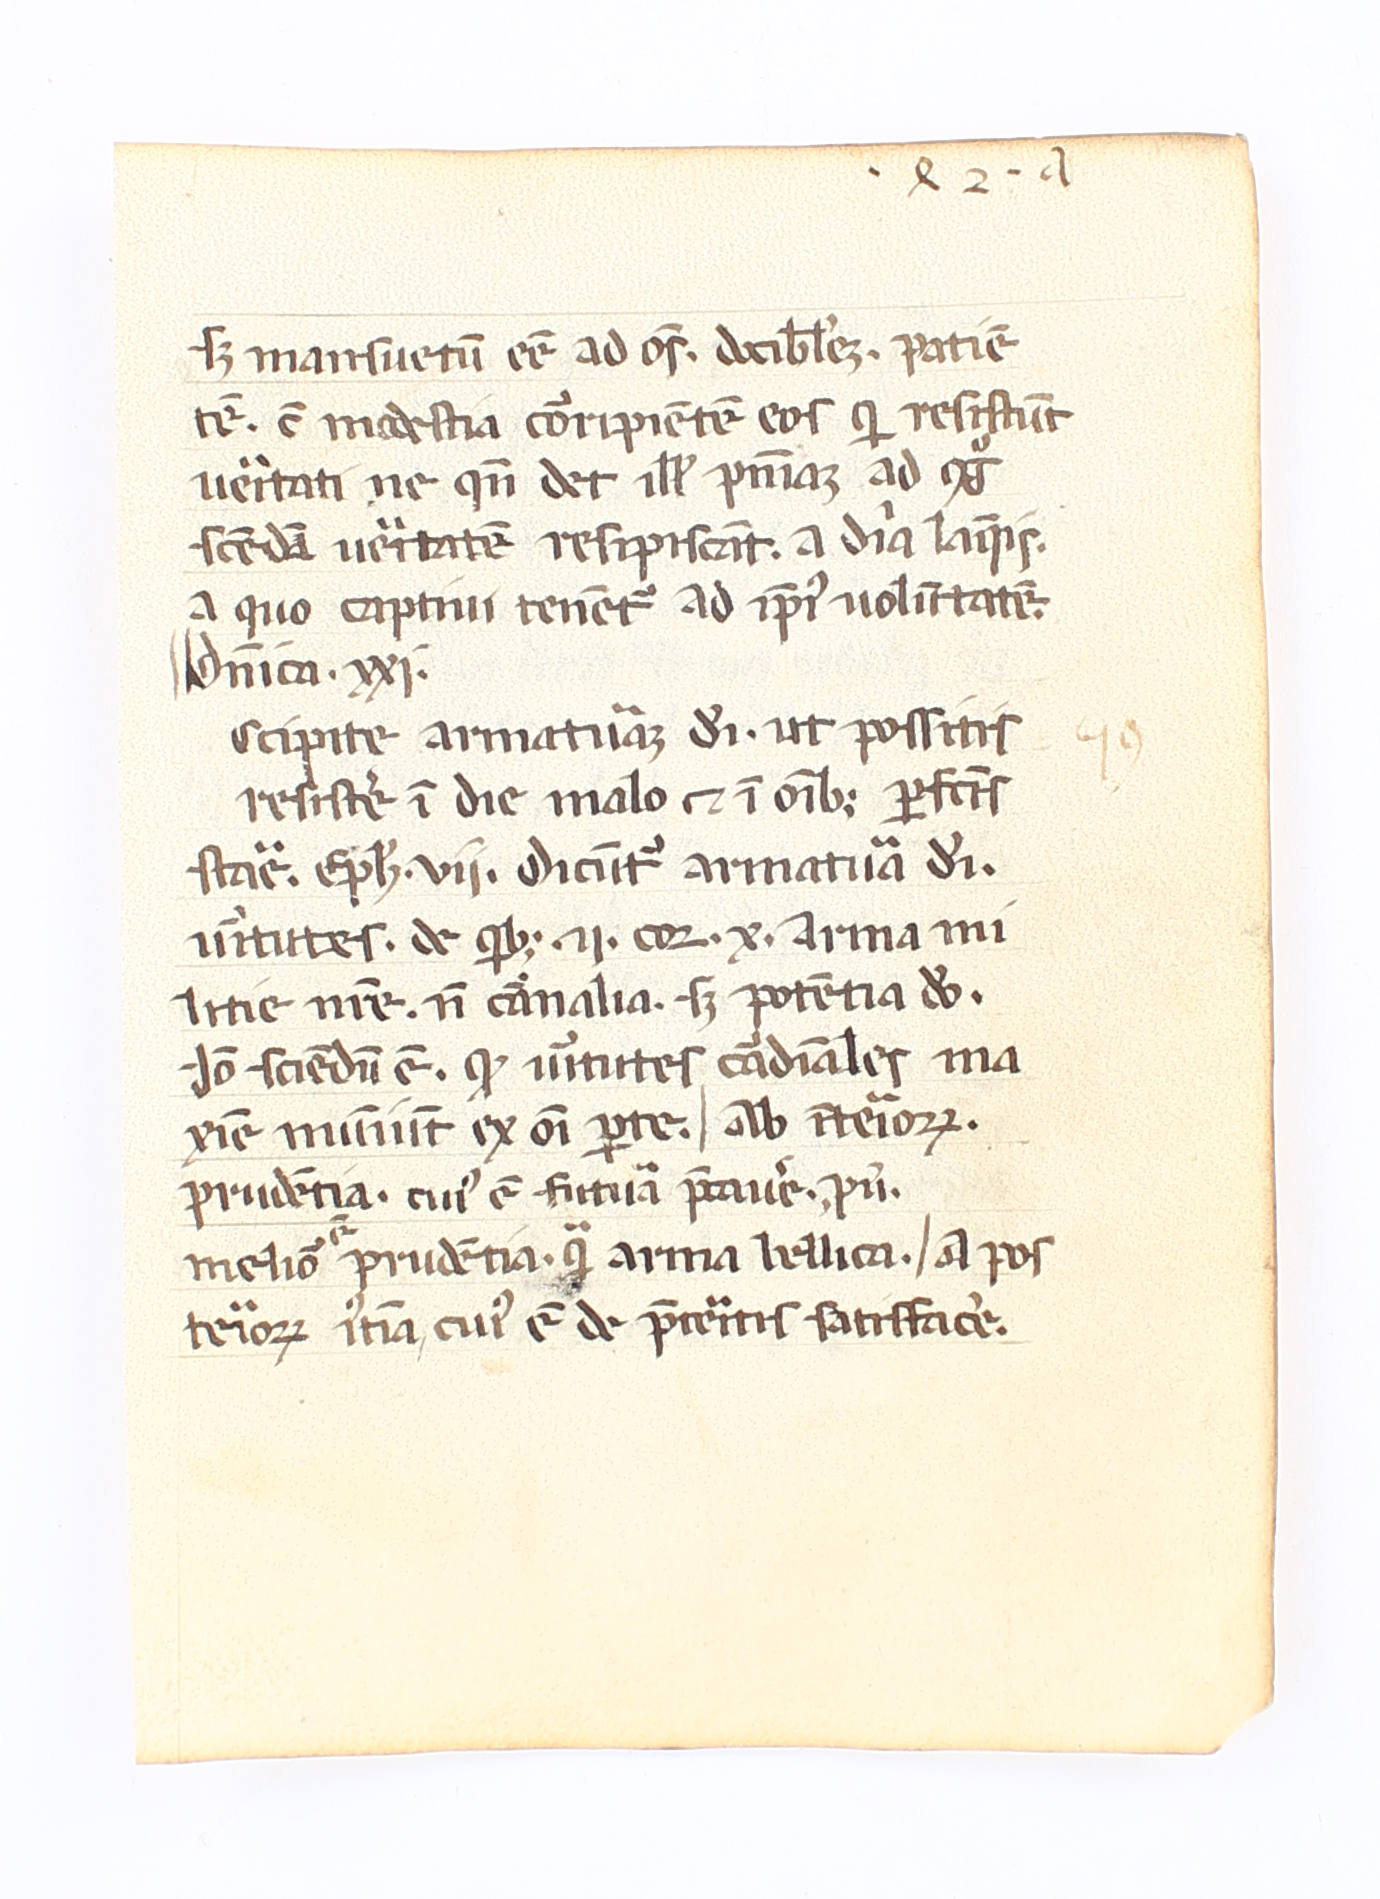 · & 2 - d
sꝫ mansuetū eē ad oēs. docibilē. patiē
tē. c̄ modestia corripiētē eos qi resistūt
ueritati ne qn̄ det ill' pn̄iaꝫ ad cog
scēdā ueritatē resipiscāt. a dia laq̄is.
a quo captiui tenēt᷑ ad ip̄i' uolūtatē.
Dn̄ica. xxj.
ccipite armaturāꝫ d'i. ut possitis
resistē ī die malo ⁊ ī oīb; ꝑfcī̄s
staē. Eph'. vij. Dicūt᷑ armatua d'i.
uīrtutes. de qib; .ij. coꝝ. x. Arma mi
litie nr̄e. n̄ canalia. sꝫ potētia d'o.
Jō sciēdū ē. qͥ uīrtutes cadiāles ma
xie muniūt ex oī ꝑte. / Ab īteioꝝ.
prudētia. cui' ē futua p̄cauē. pu.
melio ē prudētia. qͣ arma bellica. / A pos
teioꝝ iītīa, cui' ē de p̄teitis satisfacē.
49